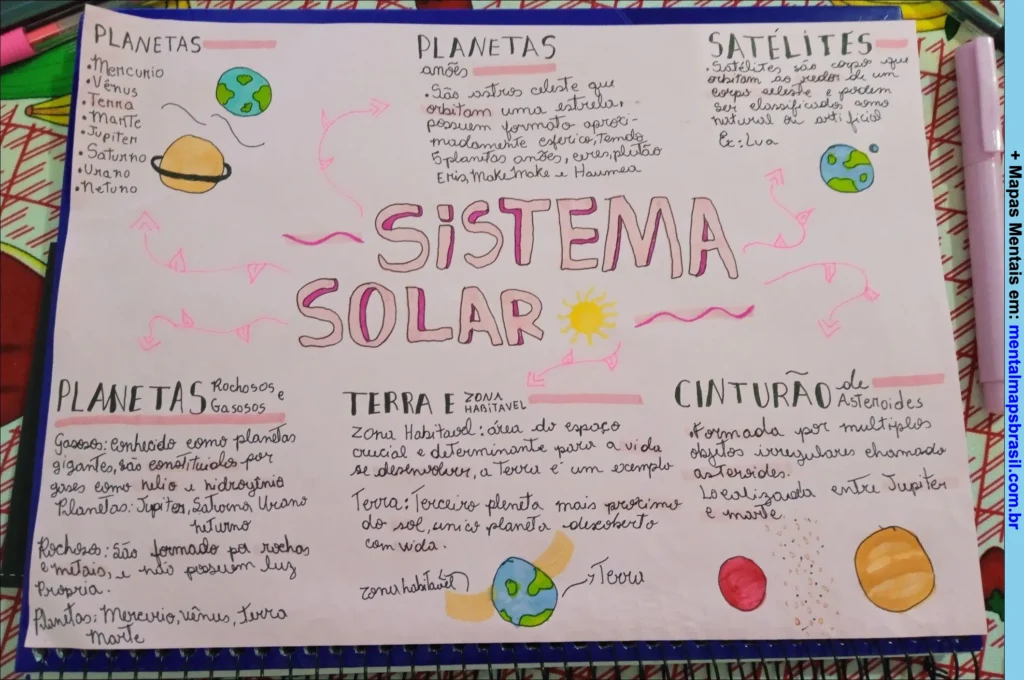 PLANETAS
•Mercurio
•Vênus
•Terra
•Marte
•Jupiter
•Saturno
•Urano
•Netuno
PLANETAS
anões
•São astros celeste que
orbitam uma estrela,
possuem formato aproxi-
madamente esferico, Temos
5 planetas anões, ceres, plutão
Eris, MakeMake e Haumea
SATÉLITES
•Satélites são corpos que
orbitam ao redor de um
corpo celeste e podem
ser classificados como
natural ou artificial
Ex: Lua
SISTEMA
SOLAR
PLANETAS Rochosos e
Gasosos
Gasoso: conhecido como planetas
gigantes, são constituidos por
gases como helio e hidrogênio
Planetas: Jupiter, Saturno, Urano
neturno
Rochosos: São formado por rochas
e metais, e não possuem luz
Propria.
Planetas: Mercurio, vênus, terra
Marte
TERRA E ZONA
HABITAVEL
Zona Habitavel: área do espaço
crucial e determinante para a vida
se desenvolver, a Terra é um exemplo
Terra: Terceiro planeta mais proximo
do sol, unico planeta descoberto
com vida.
zona habitavel
Terra
CINTURÃO de
Asteroides
•Formada por multiplos
objetos irregulares chamado
asteroides.
Localizada entre Jupiter
e marte
+ Mapas Mentais em: mentalmapsbrasil.com.br